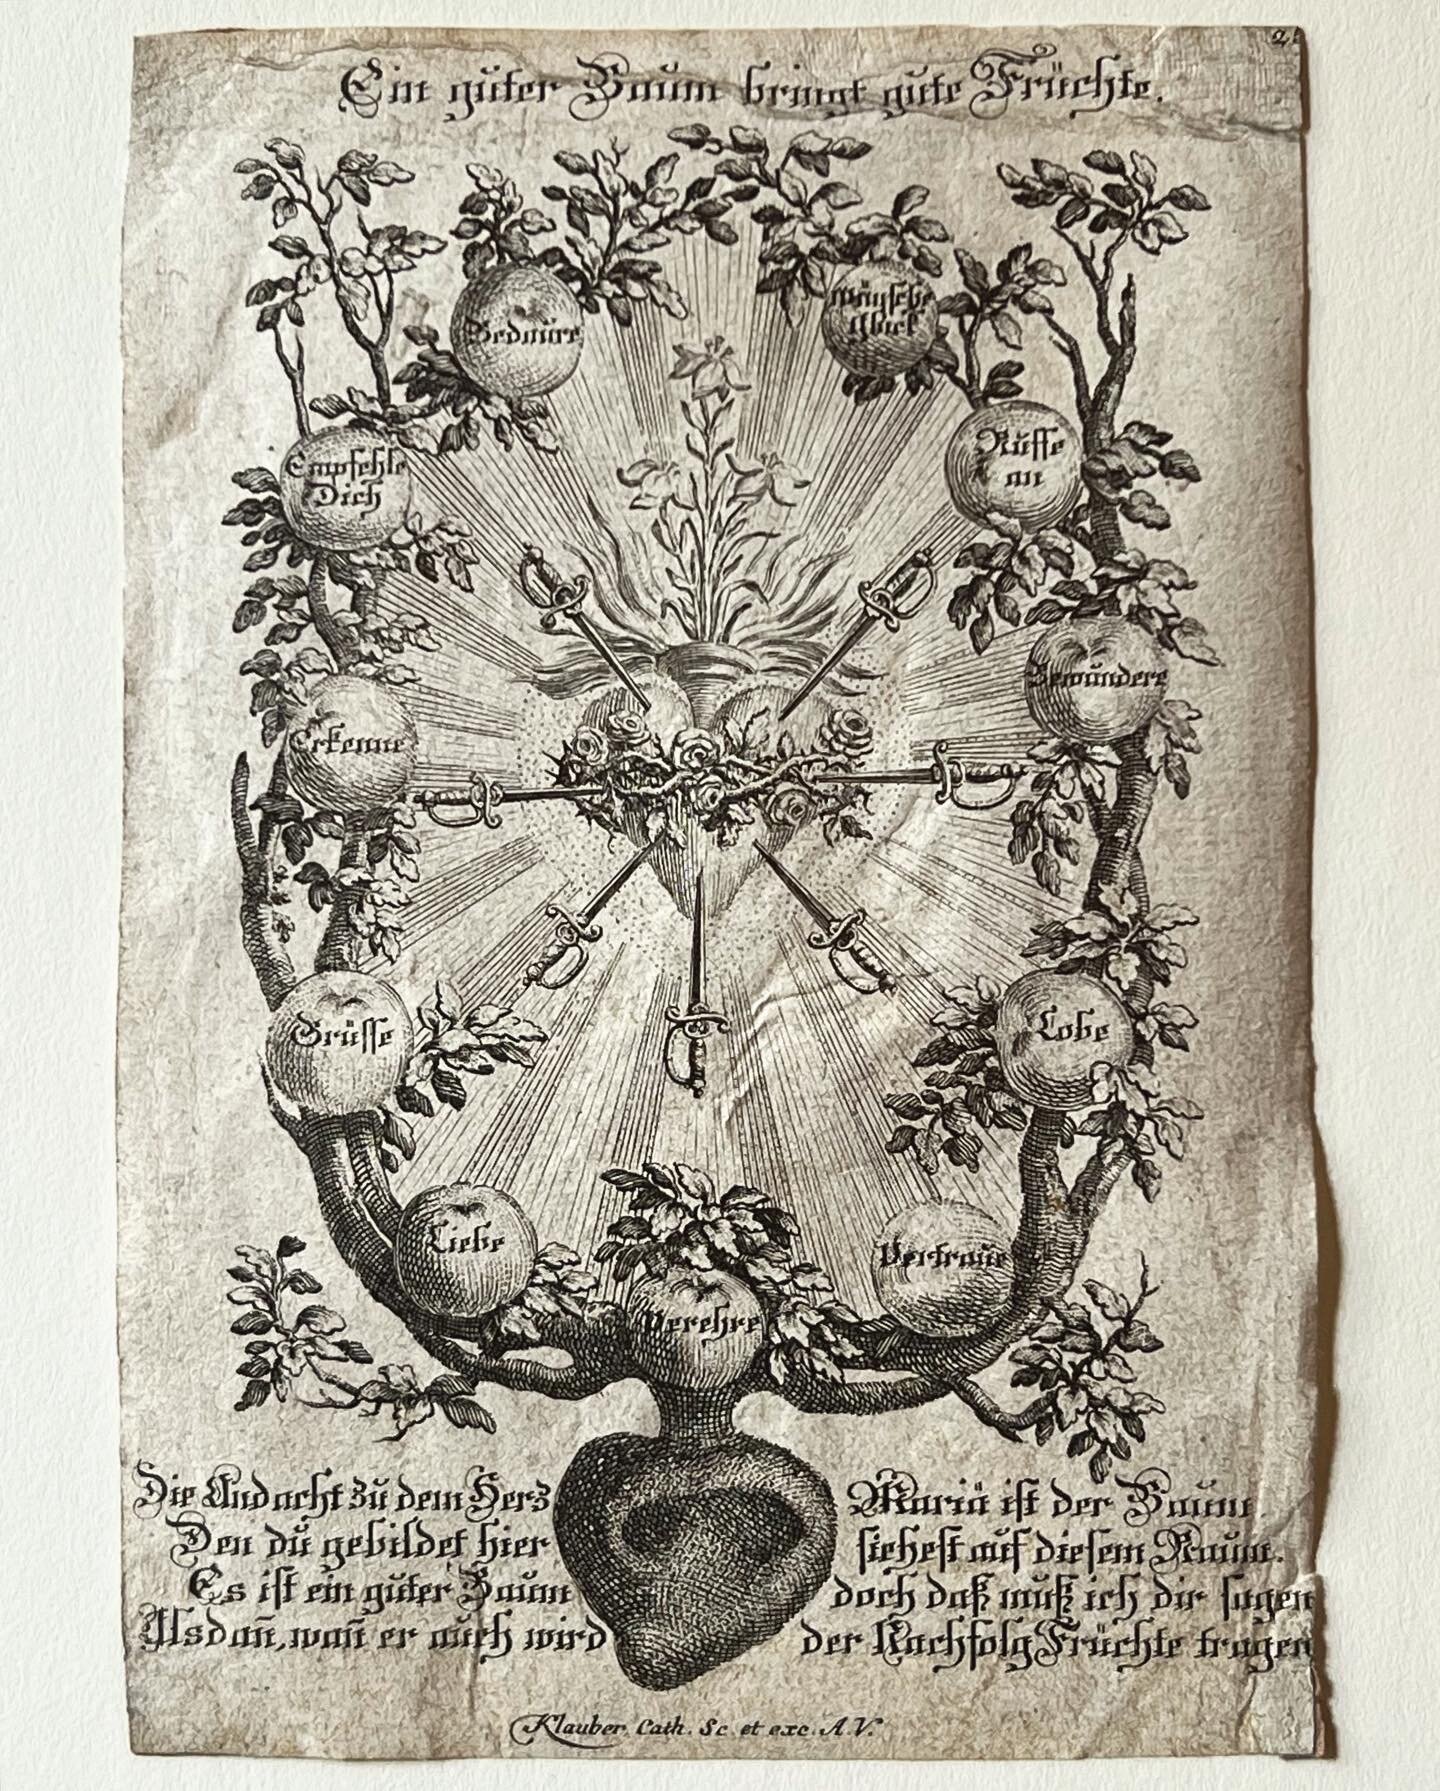 2
Ein gůter Baům bringt gůte Früchte.
Bedaůre
Wünsche
Glück
Empfehle
Dich
Růffe
an
Erkenne
Bewůndere
Grüsse
Lobe
Liebe
Vertraůe
Verehre
Die Andacht zů dem Herz Mariä ist der Baům
Den dů gebildet hier siehest aůf diesem Raům.
Es ist ein gůter Baům doch daß můß ich dir sagen
Alsdañ, wañ er aůch wird der Nachfolg Früchte tragen
Klauber Cath. Sc. et exc. A.V.